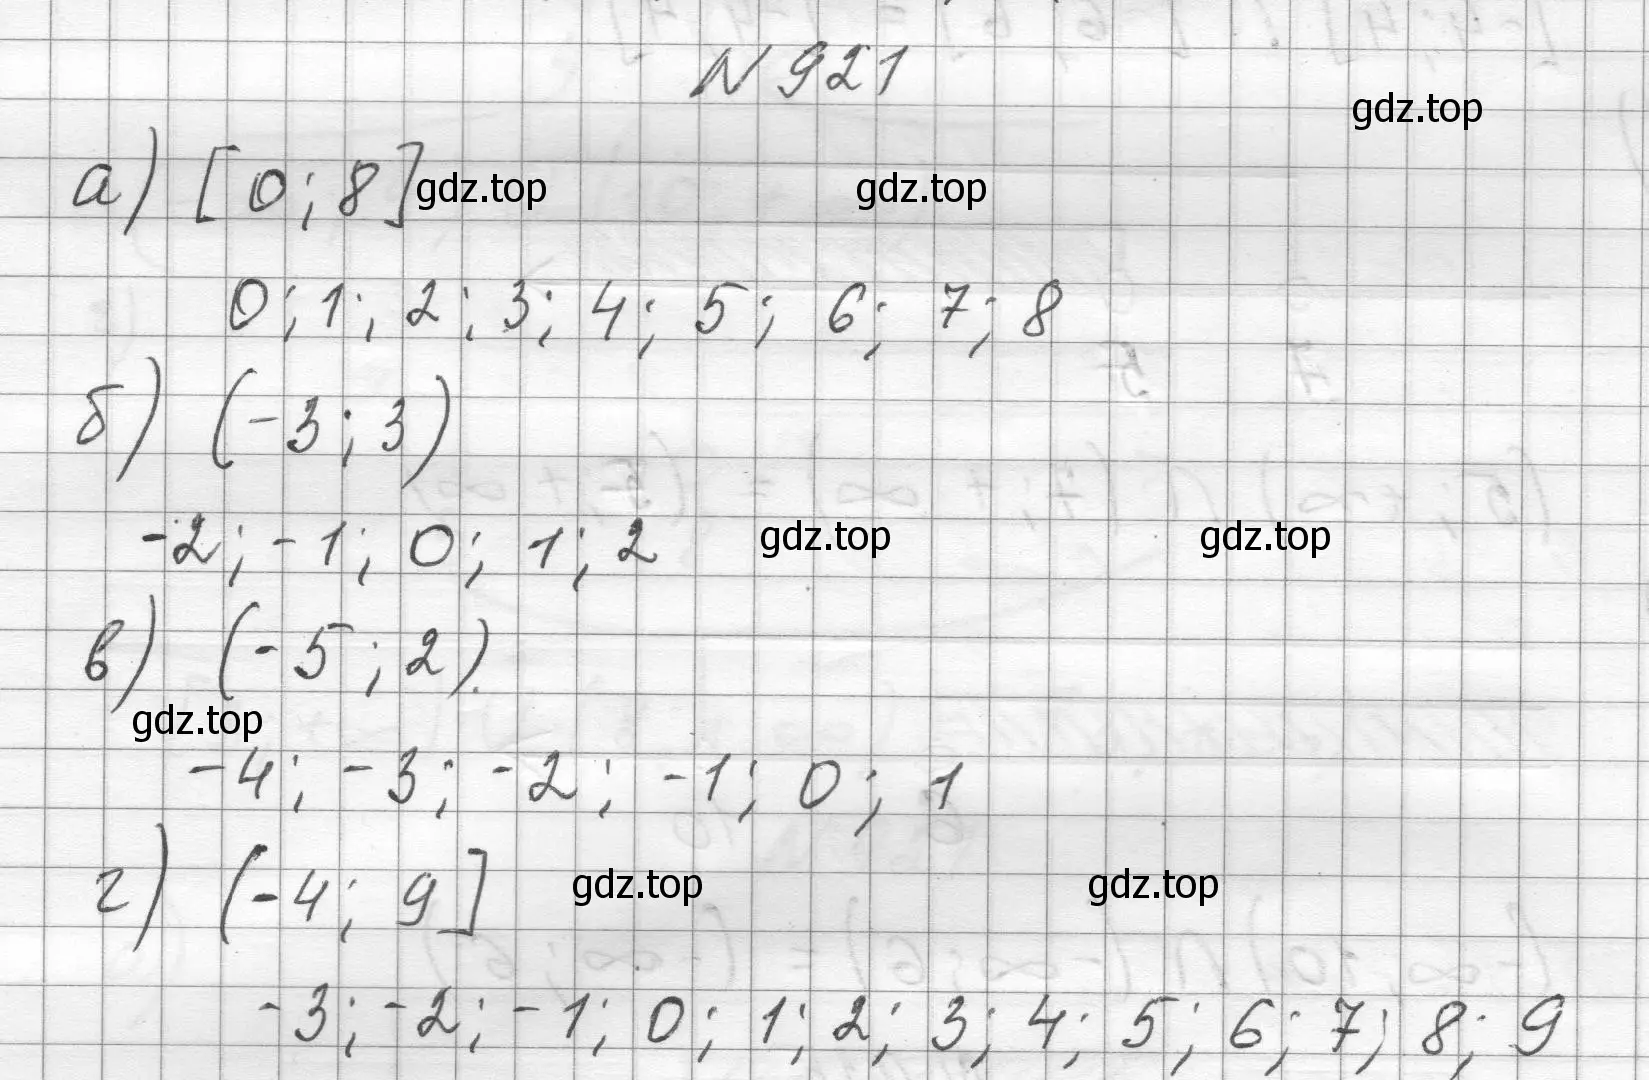 N 921
gdz.top
а) [0; 8] gdz.top gdz.top
0; 1; 2; 3; 4; 5; 6; 7; 8
б) (-3; 3)
-2; -1; 0; 1; 2 gdz.top gdz.top
в) (-5; 2).
gdz.top
-4; -3; -2; -1; 0; 1
г) (-4; 9] gdz.top gdz.top
-3; -2; -1; 0; 1; 2; 3; 4; 5; 6; 7; 8; 9